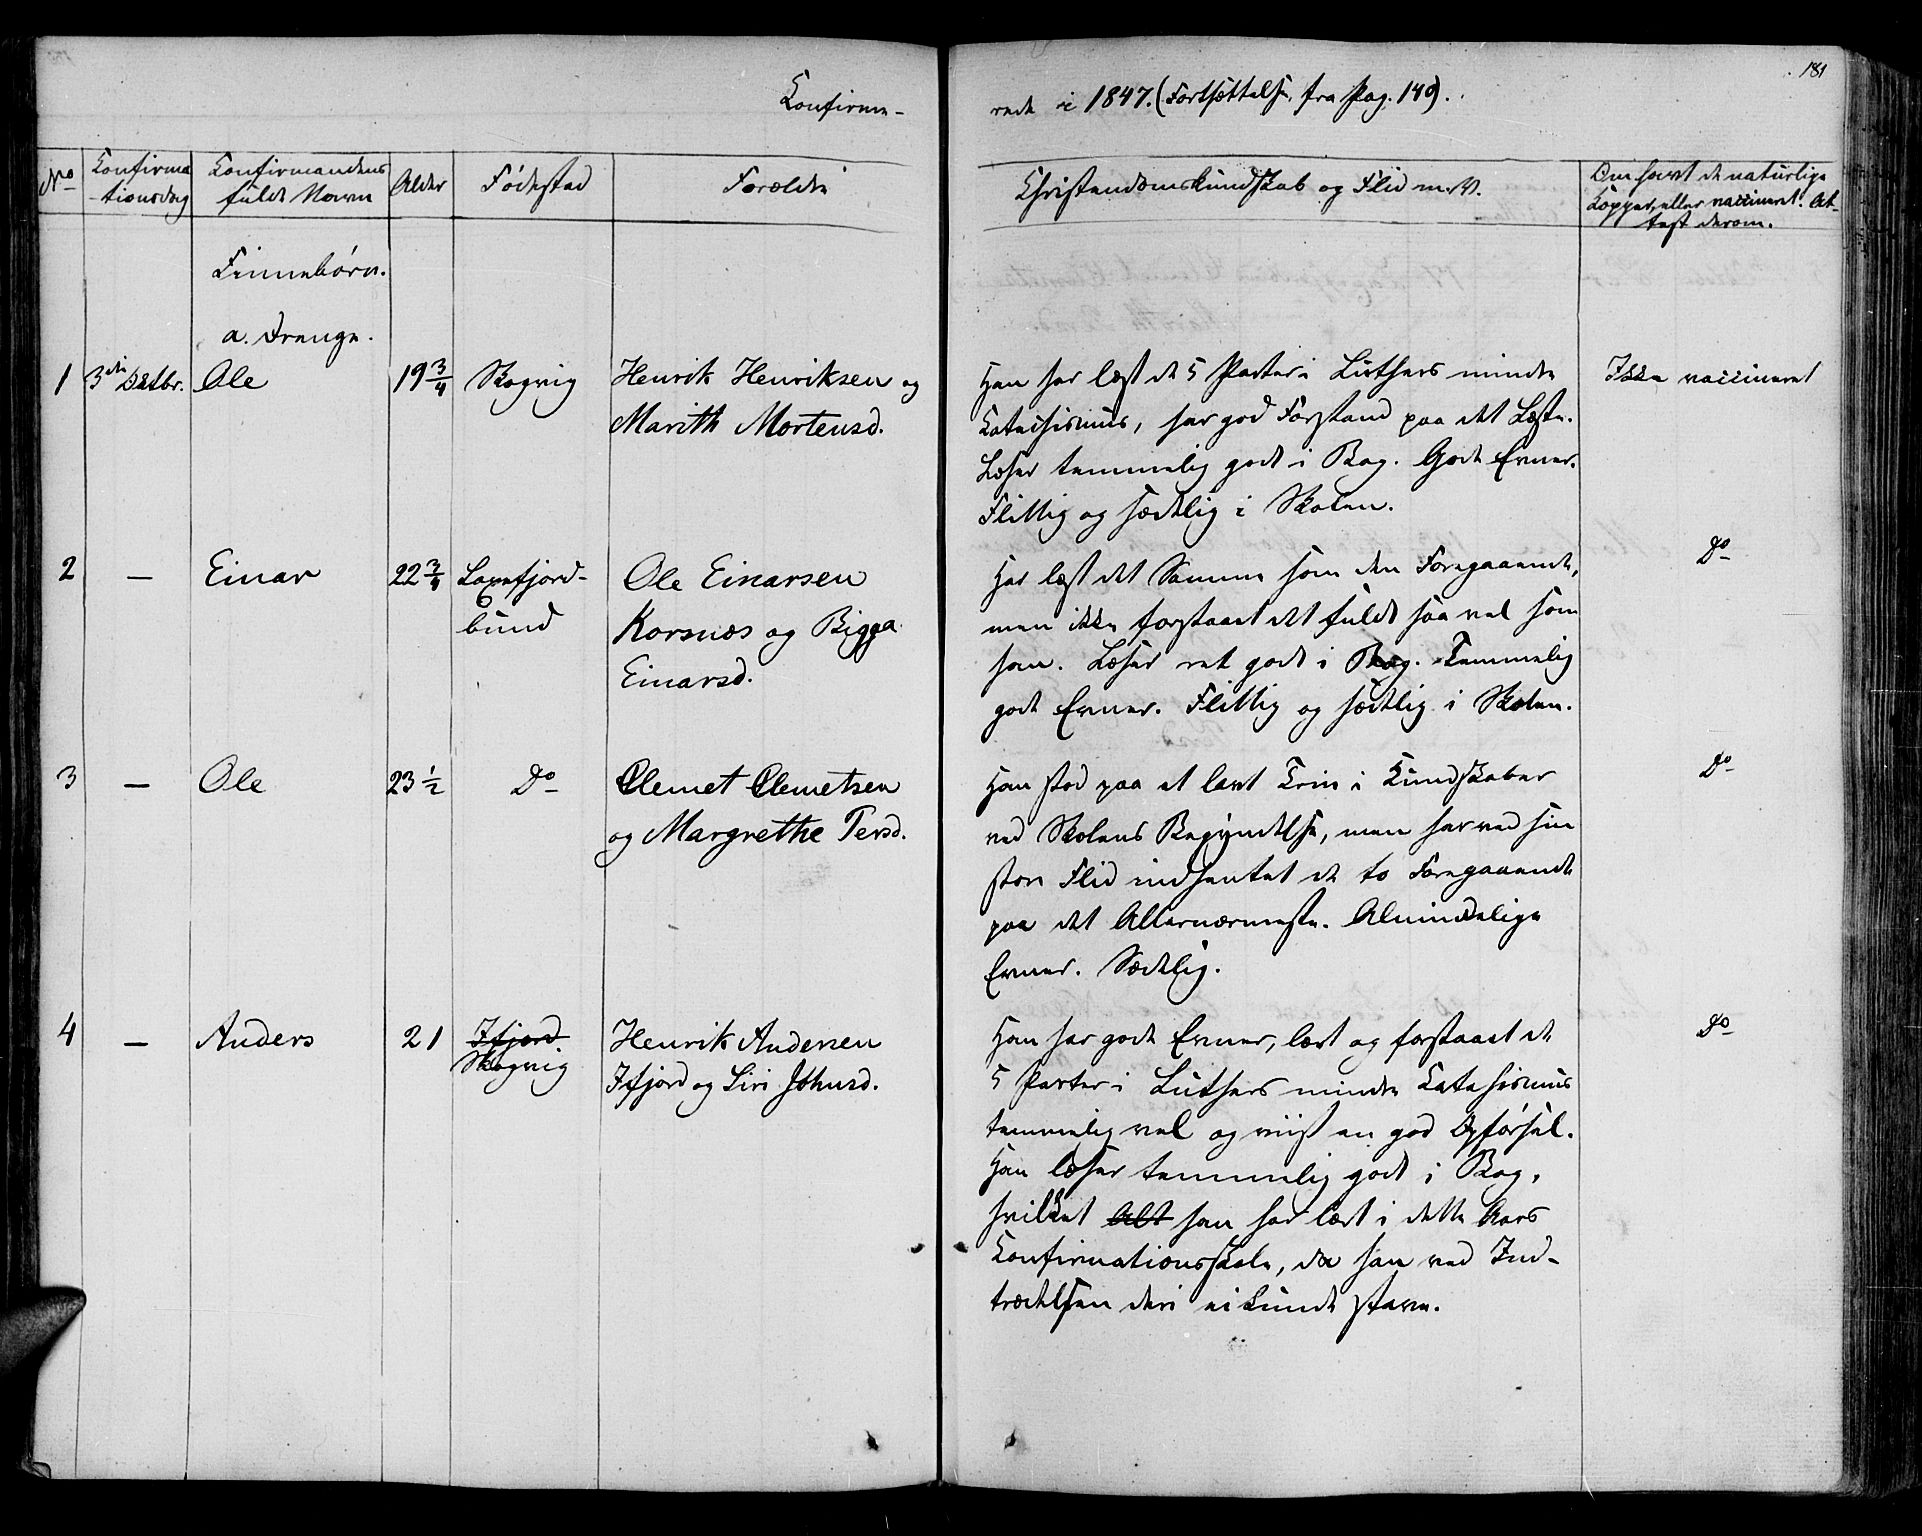 181
Confirme-
rede i 1847. (Fortsættelse fra Pag. 149).
No
Confirma
-tionsdag
Confirmandens
fulde Navn
Alder
Fødestad
Forældre
Christendomskundskab og Flid m. V.
Om havt de naturlige
Kopper, eller vaccineret. At-
test derom.
Finnebørn.
a. Drenge.
1 3die Octbr. Ole 19 3/4 Skogvig Henrik Henriksen og
Marith Mortensd.
Han har læst de 5 Parter i Luthers mindre
Catechismus, har god Forstand paa det Læste.
Læser temmelig godt i Bog. Gode Evner.
Flittig og sædelig i Skolen.
Ikke vaccineret
2 — Einar 22 3/4 Laxefjord-
bund
Ole Einarsen
Korsnæs og Bigga
Einarsd.
Har læst det Samme som den Foregaaende,
men ikke forstaaet det fuldt saa vel som
han. Læser ret godt i Bog. Temmelig
gode Evner. Flittig og sædelig i Skolen.
Do
3 — Ole 23 1/2 Do Clemet Clemetsen
og Margrethe Persd.
Han stod paa et lavt Trin i Kundskaber
ved Skolens Begyndelse, men har ved sin
store Flid indhentet de to Foregaaende
paa det Allernærmeste. Almindelige
Evner. Sædelig.
Do
4 — Anders 21 Ifjord
Skogvig
Henrik Andersen
Ifjord og Siri Johnsd.
Han har gode Evner, lært og forstaaet de
5 Parter i Luthers mindre Catechismus
temmelig vel og viist en god Opførsel.
Han læser temmelig godt i Bog,
hvilket Alt han har lært i dette Aars
Confirmationsskole, da han ved Ind-
trædelsen deri ei kunde stave.
Do